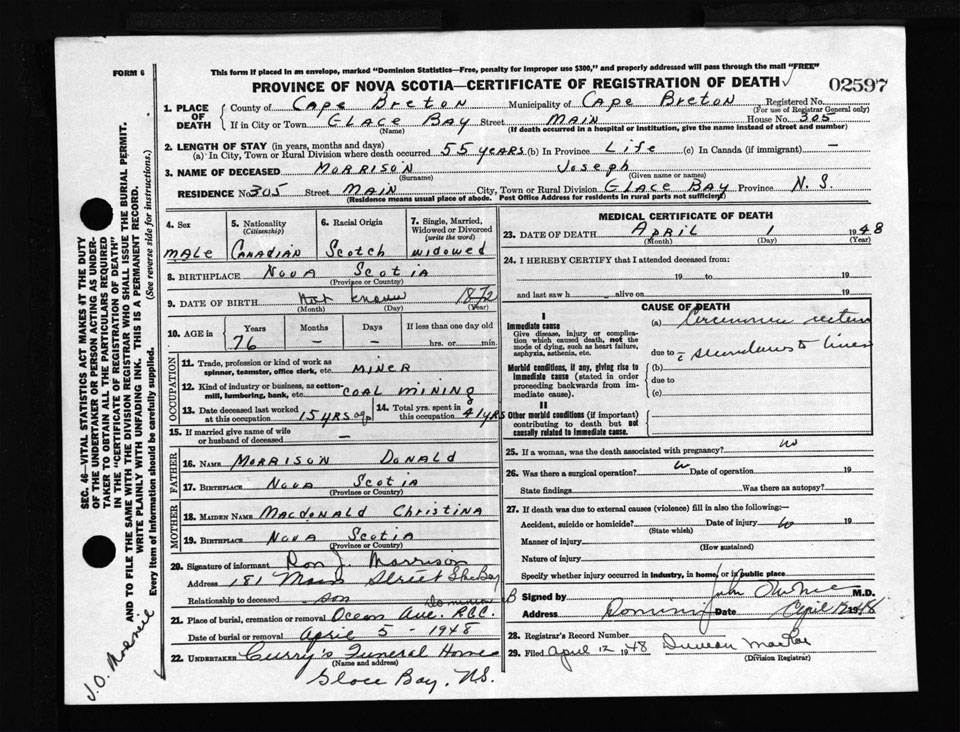 FORM 6
This form if placed in an envelope, marked "Dominion Statistics—Free, penalty for improper use $300," and properly addressed will pass through the mail "FREE"
PROVINCE OF NOVA SCOTIA—CERTIFICATE OF REGISTRATION OF DEATH
02597
1. PLACE OF DEATH
County of Cape Breton Municipality of Cape Breton Registered No.
(For use of Registrar General only)
If in City or Town GLACE BAY Street MAIN House No. 305
(Name) (If death occurred in a hospital or institution, give the name instead of street and number)
2. LENGTH OF STAY (in years, months and days)
(a) In City, Town or Rural Division where death occurred 55 years (b) In Province Life (c) In Canada (if immigrant) —
3. NAME OF DECEASED MORRISON Joseph
(Surname) (Given name or names)
RESIDENCE No 305 Street MAIN City, Town or Rural Division GLACE BAY Province N. S.
(Residence means usual place of abode. Post Office Address for residents in rural parts not sufficient)
4. Sex
male
5. Nationality
(Citizenship)
Canadian
6. Racial Origin
Scotch
7. Single, Married, Widowed or Divorced
(write the word)
widowed
8. BIRTHPLACE Nova Scotia
(Province or Country)
9. DATE OF BIRTH Not known 1872
(Month) (Day) (Year)
10. AGE in
Years Months Days If less than one day old
76 — — hrs. or min.
OCCUPATION
11. Trade, profession or kind of work as spinner, teamster, office clerk, etc. MINER
12. Kind of industry or business, as cotton-mill, lumbering, bank, etc. COAL MINING
13. Date deceased last worked at this occupation 15 yrs ago
14. Total yrs. spent in this occupation 41 yrs
15. If married give name of wife or husband of deceased —
FATHER
16. NAME MORRISON DONALD
17. BIRTHPLACE Nova Scotia
(Province or Country)
MOTHER
18. MAIDEN NAME MACDONALD Christina
19. BIRTHPLACE Nova Scotia
(Province or Country)
20. Signature of informant Ron J. Morrison
Address 181 Main Street Gl. Bay
Relationship to deceased son
21. Place of burial, cremation or removal Ocean Ave. R.C.C. Dominion
Date of burial or removal April 5 - 1948
22. UNDERTAKER Curry's Funeral Home
(Name and address)
Glace Bay, N.S.
MEDICAL CERTIFICATE OF DEATH
23. DATE OF DEATH APRIL 1 1948
(Month) (Day) (Year)
24. I HEREBY CERTIFY that I attended deceased from:
19 to 19
and last saw h alive on 19
CAUSE OF DEATH
I
Immediate cause
Give disease, injury or complication which caused death, not the mode of dying, such as heart failure, asphyxia, asthenia, etc.
(a) Carcinoma rectum
due to
Morbid conditions, if any, giving rise to immediate cause (stated in order proceeding backwards from immediate cause).
(b)
due to
(c)
II
Other morbid conditions (if important) contributing to death but not causally related to immediate cause.
25. If a woman, was the death associated with pregnancy?
26. Was there a surgical operation? Date of operation 19
State findings Was there an autopsy?
27. If death was due to external causes (violence) fill in also the following:—
Accident, suicide or homicide? Date of injury 19
(State which)
Manner of injury
(How sustained)
Nature of injury
Specify whether injury occurred in industry, in home, or in public place
Signed by M.D.
Address Dominion Date April 12 1948
28. Registrar's Record Number
29. Filed April 12 1948 Duncan MacRae
(Division Registrar)
SEC. 46—VITAL STATISTICS ACT MAKES IT THE DUTY
OF THE UNDERTAKER OR PERSON ACTING AS UNDER-
TAKER TO OBTAIN ALL THE PARTICULARS REQUIRED
IN THE "CERTIFICATE OF REGISTRATION OF DEATH"
AND TO FILE THE SAME WITH THE DIVISION REGISTRAR WHO SHALL ISSUE THE BURIAL PERMIT.
WRITE PLAINLY WITH UNFADING INK. THIS IS A PERMANENT RECORD.
Every item of information should be carefully supplied. (See reverse side for instructions.)
J.O. McNeil